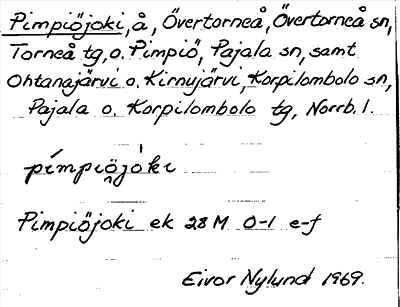 Pimpiöjoki, å, Övertorneå, Övertorneå sn,
Torneå tg, o. Pimpiö, Pajala sn, samt
Ohtanajärvi o. Kirnujärvi, Korpilombolo sn,
Pajala o. Korpilombolo tg, Norrb. l.
pímpiöjòki
Pimpiöjoki ek 28 M 0-1 e-f
Eivor Nylund 1969.